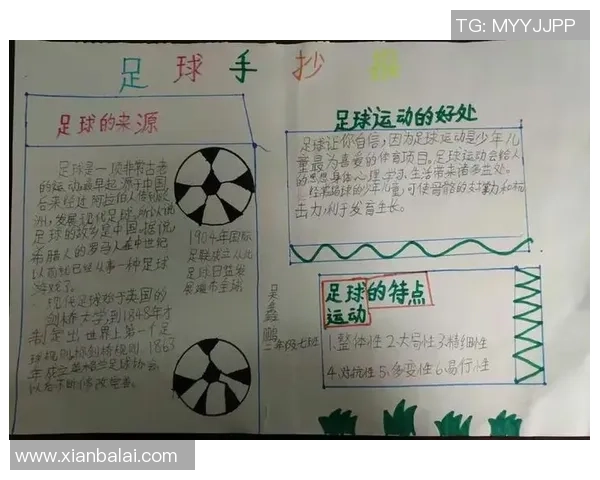 TG: MYYJJPP
足球手抄报
足球的来源
足球是一项非常古老
的运动,最早起源于中国,
后来经过阿拉伯人传到欧
洲,发展现代足球。所以说
足球的故乡是中国。据说,
希腊人的罗马人在中世纪
以前就已经从事一种足球
游戏了。
现代足球始于英国的
剑桥大学,到1848年才
制定出世界上第一个足
球规则称剑桥规则,1863
年成立英格兰足球协会
以后不断修改完善。
1904年国际
足联成立从此
足球日益发
展遍布全球
吴鑫鹏
二年级七班
足球运动的好处
足球让你自信,因为足球运动是少年儿
童最为喜爱的体育项目。足球运动会给人
的思想身体心理、学习、生活带来诸多益处。
经常踢球的少年儿童,可使骨骼的
击力,利于发育生长。
足球的特点
运动
1.整体性 2.大局性 3.精细性
4.对抗性 5.多变性 6.易行性
www.xianbalai.com